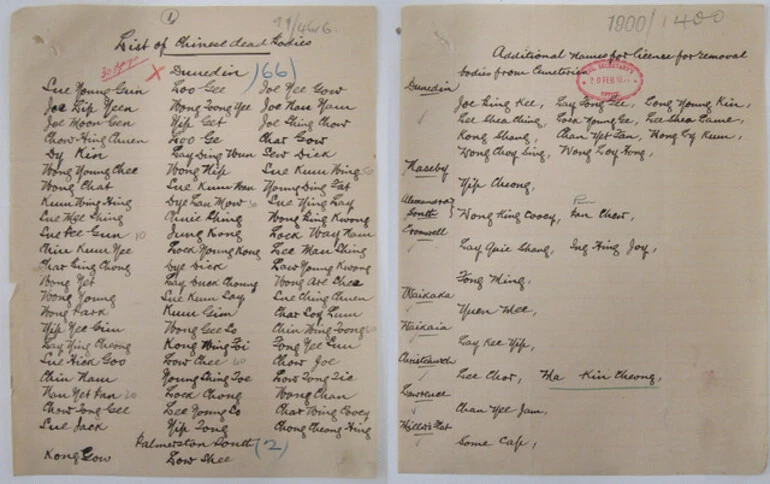 (1)
99/466
List of Chinese dead bodies
X Dunedin (66)
Sue Young Gun Loo Gee Joe Yee Gow
Joe Dip Yeen Wong Tong Yee Joe Nam Nam
Joe Moon Gen Yip Get Joe Shing Chow
Chow Hing Chuen Loo Ge Char Gow
Dy Kin Lay Ding Wun Sew Dick
Wong Young Chee Wong Hip Sue Kum Wing
Wong Chat Sue Kum Wan Young Ding Fat
Kum Wing Hing Dye Lan Mow 30 Sue Ying Lay
Sue Mee Shing Annie Shing Wong King Kwong
Sue Fee Gun 10 Jung Kong Lock Way Nam
Chin Kum Yee Lock Young Kong Lee Man Shing
Char Ging Chong Dye Dick Law Young Kwong
Wong Yet Lay Duck Choung Wong Are Chee
Wong Young Sue Kum Lay Sue Ching Chuen
Wong Park Kum Gim Char Loy Lum
Yip Yee Gim Wong Gee Lo Chin Wing Tong 60
Lay Ying Cheong Kong Wing Foi Tong Yee Eun
Sue Hick Goo Low Chee 40 Chow Joe
Chin Nam Young Shing Toe Low Tong Sic
Han Yet Fan 20 Lock Chong Wong Chan
Chow Tong Gee Lee Young Lo Char Wing Cooey
Sue Jack Yip Tong Chong Cheong Hing
Palmerston South (2)
Kong Gow Low Shee
1900/1400
Additional names for licence for removal
bodies from Cemeteries
20 FEB
OFFICE
Dunedin
Joe King Kee, Lay Tong Gee, Long Young Kin,
Lee Shea Ching, Lock Young Gee, Lee Shea Lame,
Kong Shang, Chan Yet Fan, Wong Ly Kum,
Wong Choy Sing, Wong Loy Hong,
Naseby
Yip Cheong,
Alexandra
South } Wong King Cooey, Fan Chew,
Cromwell
Lay Quie Shang, Ing Hing Joy,
Tong Ming,
Waikaka
Yuen Mee,
Waikaia
Lay Kee Yip,
Christchurch
Lee Chor, Ma Kin Cheong,
Lawrence
Chan Yee Jam,
Miller's Flat
Some Cap,